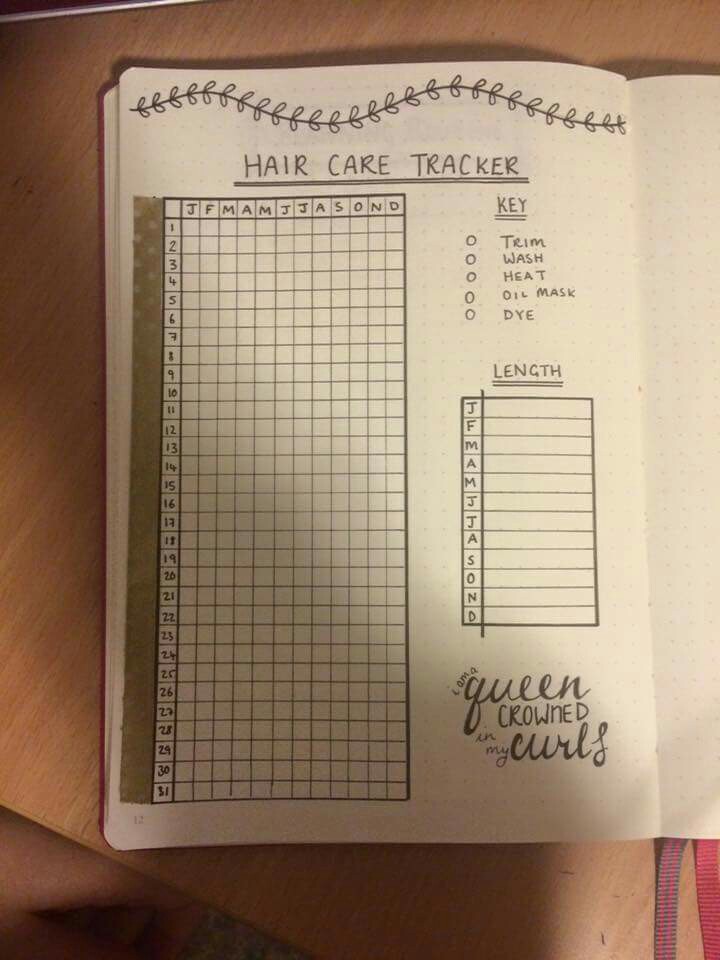 HAIR CARE TRACKER
J F M A M J J A S O N D
1
2
3
4
5
6
7
8
9
10
11
12
13
14
15
16
17
18
19
20
21
22
23
24
25
26
27
28
29
30
31
KEY
O TRIM
O WASH
O HEAT
O OIL MASK
O DYE
LENGTH
J
F
M
A
M
J
J
A
S
O
N
D
i am a
queen
CROWNED
in
my curls
12